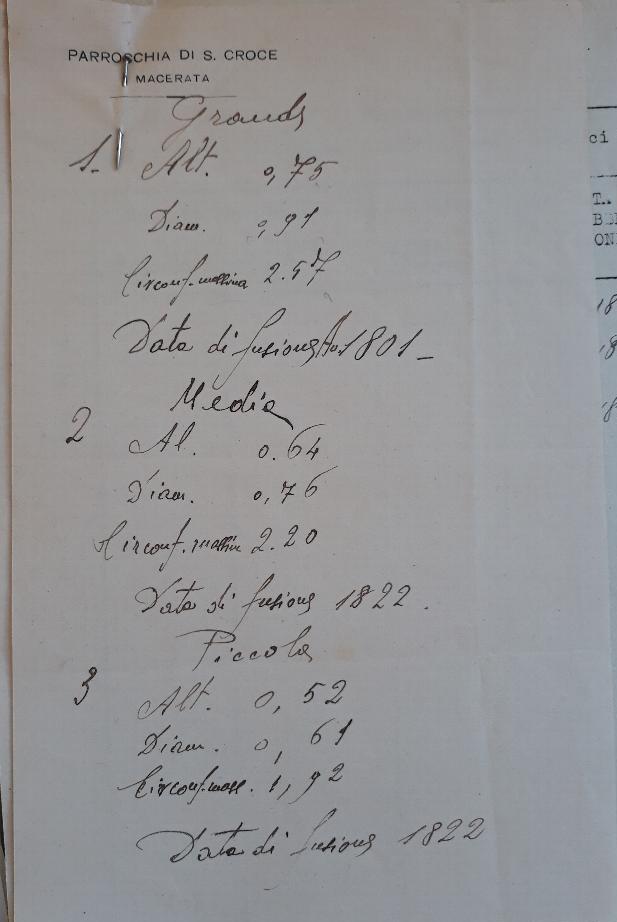 PARROCCHIA DI S. CROCE
MACERATA
Grande
1. Alt. 0,75
Diam. 0,91
Circonf. massima 2.57
Data di fusione 1801 -
Media
2 Al. 0.64
Diam. 0,76
Circonf. massima 2.20
Data di fusione 1822.
Piccola
3 Alt. 0,52
Diam. 0,61
Circonf. mass. 1,92
Data di fusione 1822
ci
T.
ON
18
18
18